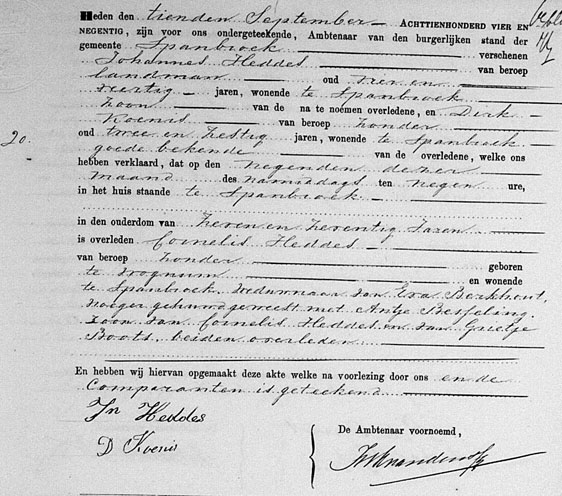 Heden den tienden September ACHTTIENHONDERD VIER EN
NEGENTIG, zijn voor ons ondergeteekende, Ambtenaar van den burgerlijken stand der
gemeente Spanbroek verschenen
Johannes Heddes van beroep
landman oud vier en
veertig jaren, wonende te Spanbroek
zoon van de na te noemen overledene, en Dirk
Koenis van beroep zonder
oud twee en zestig jaren, wonende te Spanbroek
20. goede bekende van de overledene, welke ons
hebben verklaard, dat op den negenden dezer
maand des namiddags ten negen ure,
in het huis staande te Spanbroek
in den ouderdom van zeven en zeventig Jaren
is overleden Cornelis Heddes
van beroep zonder geboren
te Wognum en wonende
te Spanbroek, weduwnaar van Eva Berkhout,
vroeger gehuwd geweest met Antje Besseling.
zoon van Cornelis Heddes en van Grietje
Boots, beiden overleden
En hebben wij hiervan opgemaakt deze akte welke na voorlezing door ons en de
Comparanten is geteekend
Jn Heddes
D Koenis
De Ambtenaar voornoemd,